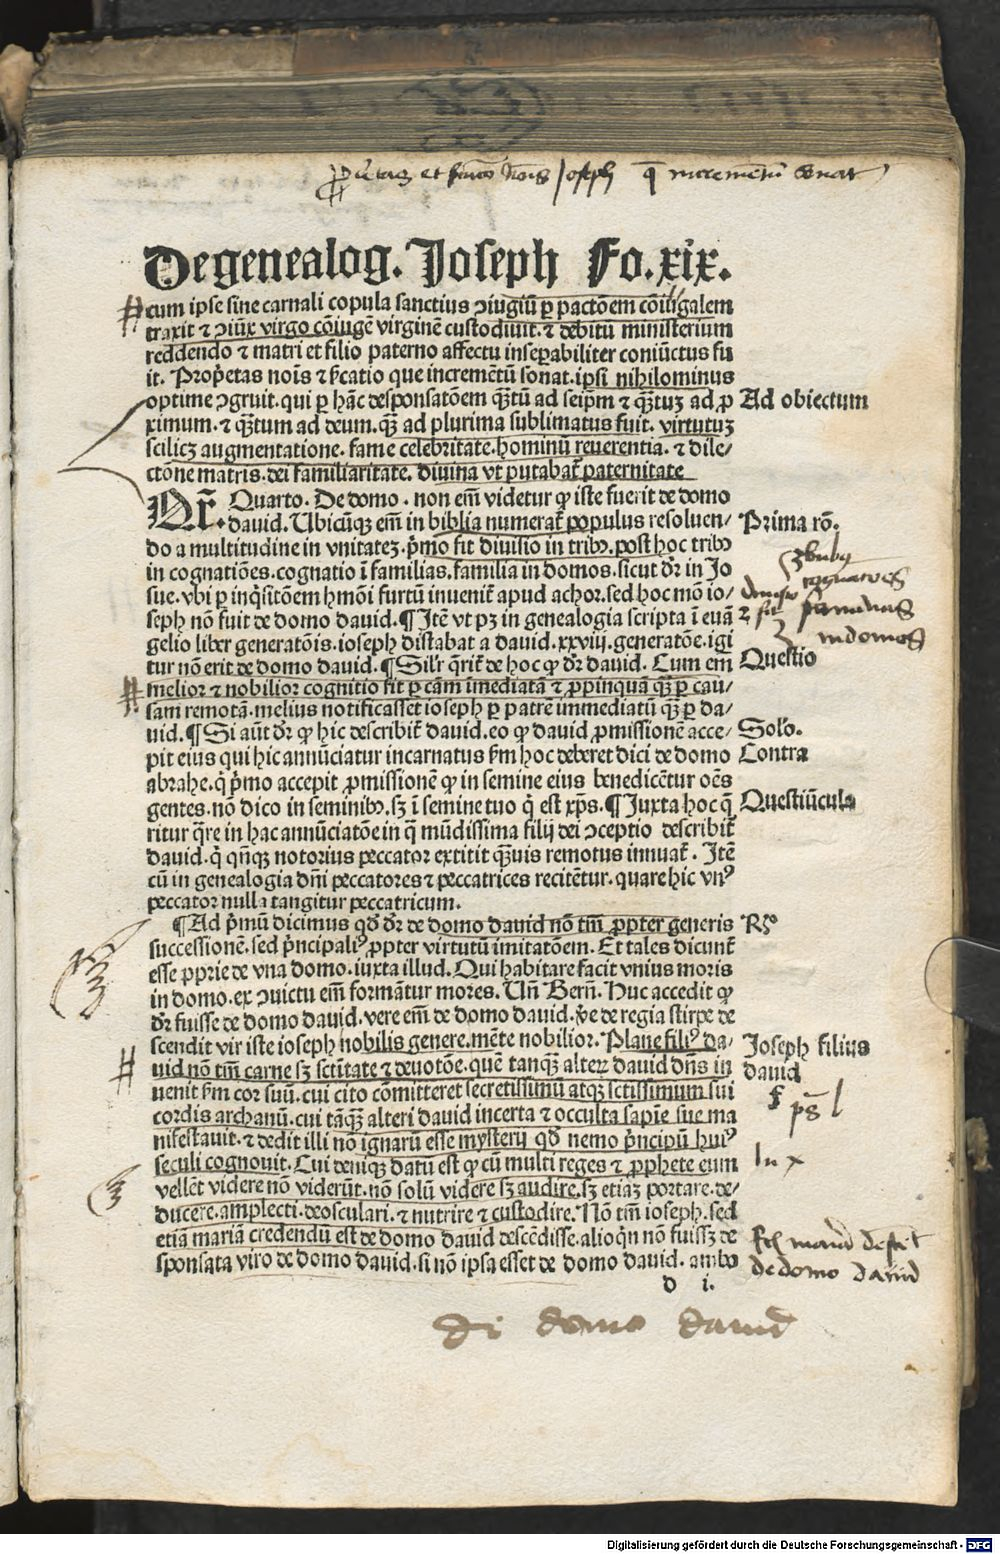 Joseph incrementū sonat
De genealog. Joseph Fo. xix.
cum ipse sine carnali copula sanctius ꝯiugiū ꝑ pactōem cōiūgalem
traxit ⁊ ꝯiūx virgo cōiugē virginē custodiuit. ⁊ debitū ministerium
reddendo ⁊ matri et filio paterno affectu inseꝑabiliter coniūctus fu
it. Propͥetas noīs ⁊ sͥcatio que incremētū sonat. ipsi nihilominus
optime ꝯgruit. qui ꝑ hāc desponsatōem qᷓtū ad seipm̄ ⁊ qᷓtuꝫ ad ꝓ
Ad obiectum
ximum. ⁊ qᷓtum ad deum. qᷓ ad plurima sublimatus fuit. virtutuꝫ
scilicꝫ augmentatione. fame celebritate. hominū reuerentia. ⁊ dile⸗
ctōne matris. dei familiaritate. diuina vt putabat᷑ paternitate
Qr̄. Quarto. De domo. non em̄ videtur ꝙ iste fuerit de domo
dauid. Ubicūqꝫ em̄ in biblia numerat᷑ populus resoluen⸗
Prima rō.
do a multitudine in vnitateꝫ. pͥmo fit diuisio in tribꝰ. post hoc tribꝰ
in cognatiōes. cognatio ī familias. familia in domos. sicut dr̄ in Jo
cognatōes
sue. vbi ꝑ inqͥsitōem hmōi furtū inuenit᷑ apud achor. sed hoc mō io⸗
familias
seph nō fuit de domo dauid. ¶ Itē vt pꝫ in genealogia scripta ī euā
in domos
gelio liber generatōis. ioseph distabat a dauid. xxviij. generatōe. igi
tur nō erit de domo dauid. ¶ Silr̄ qͥrit᷑ de hoc ꝙ dr̄ dauid. Cum em
Questio
melior ⁊ nobilior cognitio fit ꝑ cām īmediatā ⁊ ꝓpinquā qᷓꝫ ꝑ cau⸗
sam remotā. melius notificasset ioseph ꝑ patrē immediatū qᷓꝫ ꝑ da⸗
uid. ¶ Si aūt dr̄ ꝙ hic describit᷑ dauid. eo ꝙ dauid ꝓmissionē acce⸗
Solo.
pit eius qui hic annūciatur incarnatus sm̄ hoc deberet dici de domo
Contra
abrahe. qͥ pͥmo accepit ꝓmissionē ꝙ in semine eius benedicētur oēs
gentes. nō dico in seminibꝰ. sꝫ ī semine tuo qͥ est xp̄s. ¶ Juxta hoc qᷓ
Questiūcula
ritur qͣre in hac annūciatōe in qᷓ mūdissima filij dei ꝯceptio describit᷑
dauid. qͥ qn̄qꝫ notorius peccator extitit qᷓuis remotus innuat᷑. Itē
cū in genealogia dn̄i peccatores ⁊ peccatrices recitētur. quare hic vnꝰ
peccator nulla tangitur peccatricum.
¶ Ad pͥmū dicimus qd̄ dr̄ de domo dauid nō tm̄ ꝓpter generis
Rꝰ
successionē. sed pͥncipaliꝰ ꝓpter virtutū imitatōem. Et tales dicunt᷑
esse ꝓprie de vna domo. iuxta illud. Qui habitare facit vnius moris
in domo. ex ꝯuictu em̄ formātur mores. Un̄ Bern̄. Huc accedit ꝙ
dr̄ fuisse de domo dauid. vere em̄ de domo dauid. ⱱe de regia stirpe de
scendit vir iste ioseph nobilis genere. mēte nobilior. Plane filiꝰ da⸗
Joseph filius
uid nō tm̄ carne sꝫ sctītate ⁊ deuotōe. quē tanqᷓꝫ alteꝝ dauid dn̄s in
dauid
uenit sm̄ cor suū. cui cito cōmitteret secretissimū atqꝫ sctissimum sui
cordis archanū. cui tāqᷓꝫ alteri dauid incerta ⁊ occulta sapīe sue ma
nifestauit. ⁊ dedit illi nō ignarū esse mysterij qd̄ nemo pͥncipū huiꝰ
seculi cognouit. Cui deniqꝫ datū est ꝙ cū multi reges ⁊ ꝓphete eum
vellēt videre nō viderūt. nō solū videre sꝫ audire. sꝫ etiaꝫ portare. de⸗
ducere. amplecti. deosculari. ⁊ nutrire ⁊ custodire. Nō tm̄ ioseph. sed
etiā mariā credendū est de domo dauid descēdisse. alioqͥn nō fuissꝫ de
sponsata viro de domo dauid. si nō ipsa esset de domo dauid. ambo
de domo dauid
d i.
de domo dauid
Digitalisierung gefördert durch die Deutsche Forschungsgemeinschaft - DFG